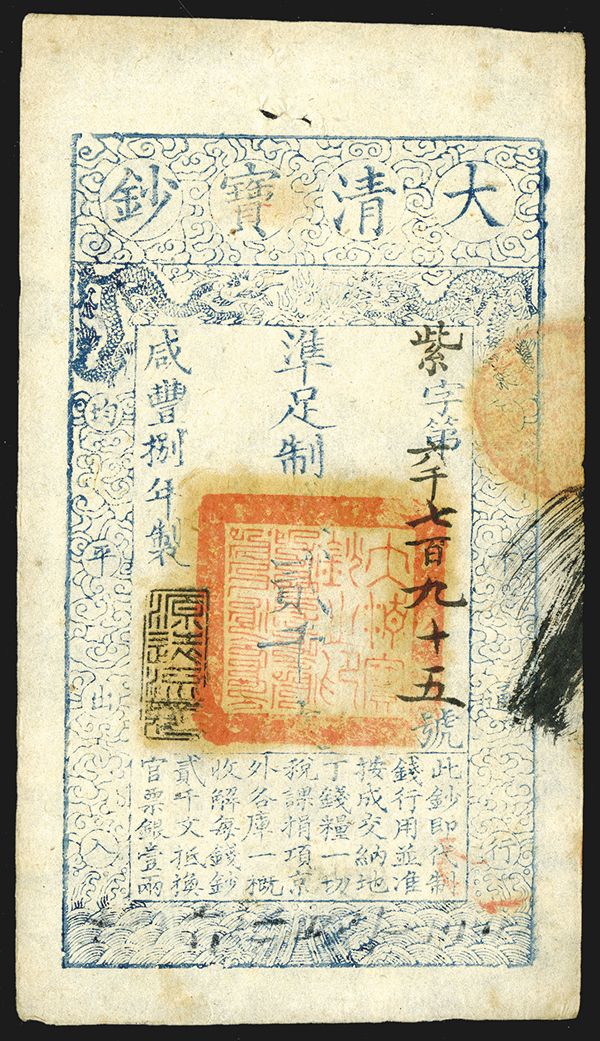 大清寶鈔
紫字第六千七百九十五號
準足制貳千
咸豐捌年製
通行
均平出入
大清寶鈔之印
源遠流長
此鈔即代制
錢行用並准
按成交納地
丁錢糧一切
稅課捐項京
外各庫一概
收解每錢鈔
貳千文抵換
官票銀壹兩